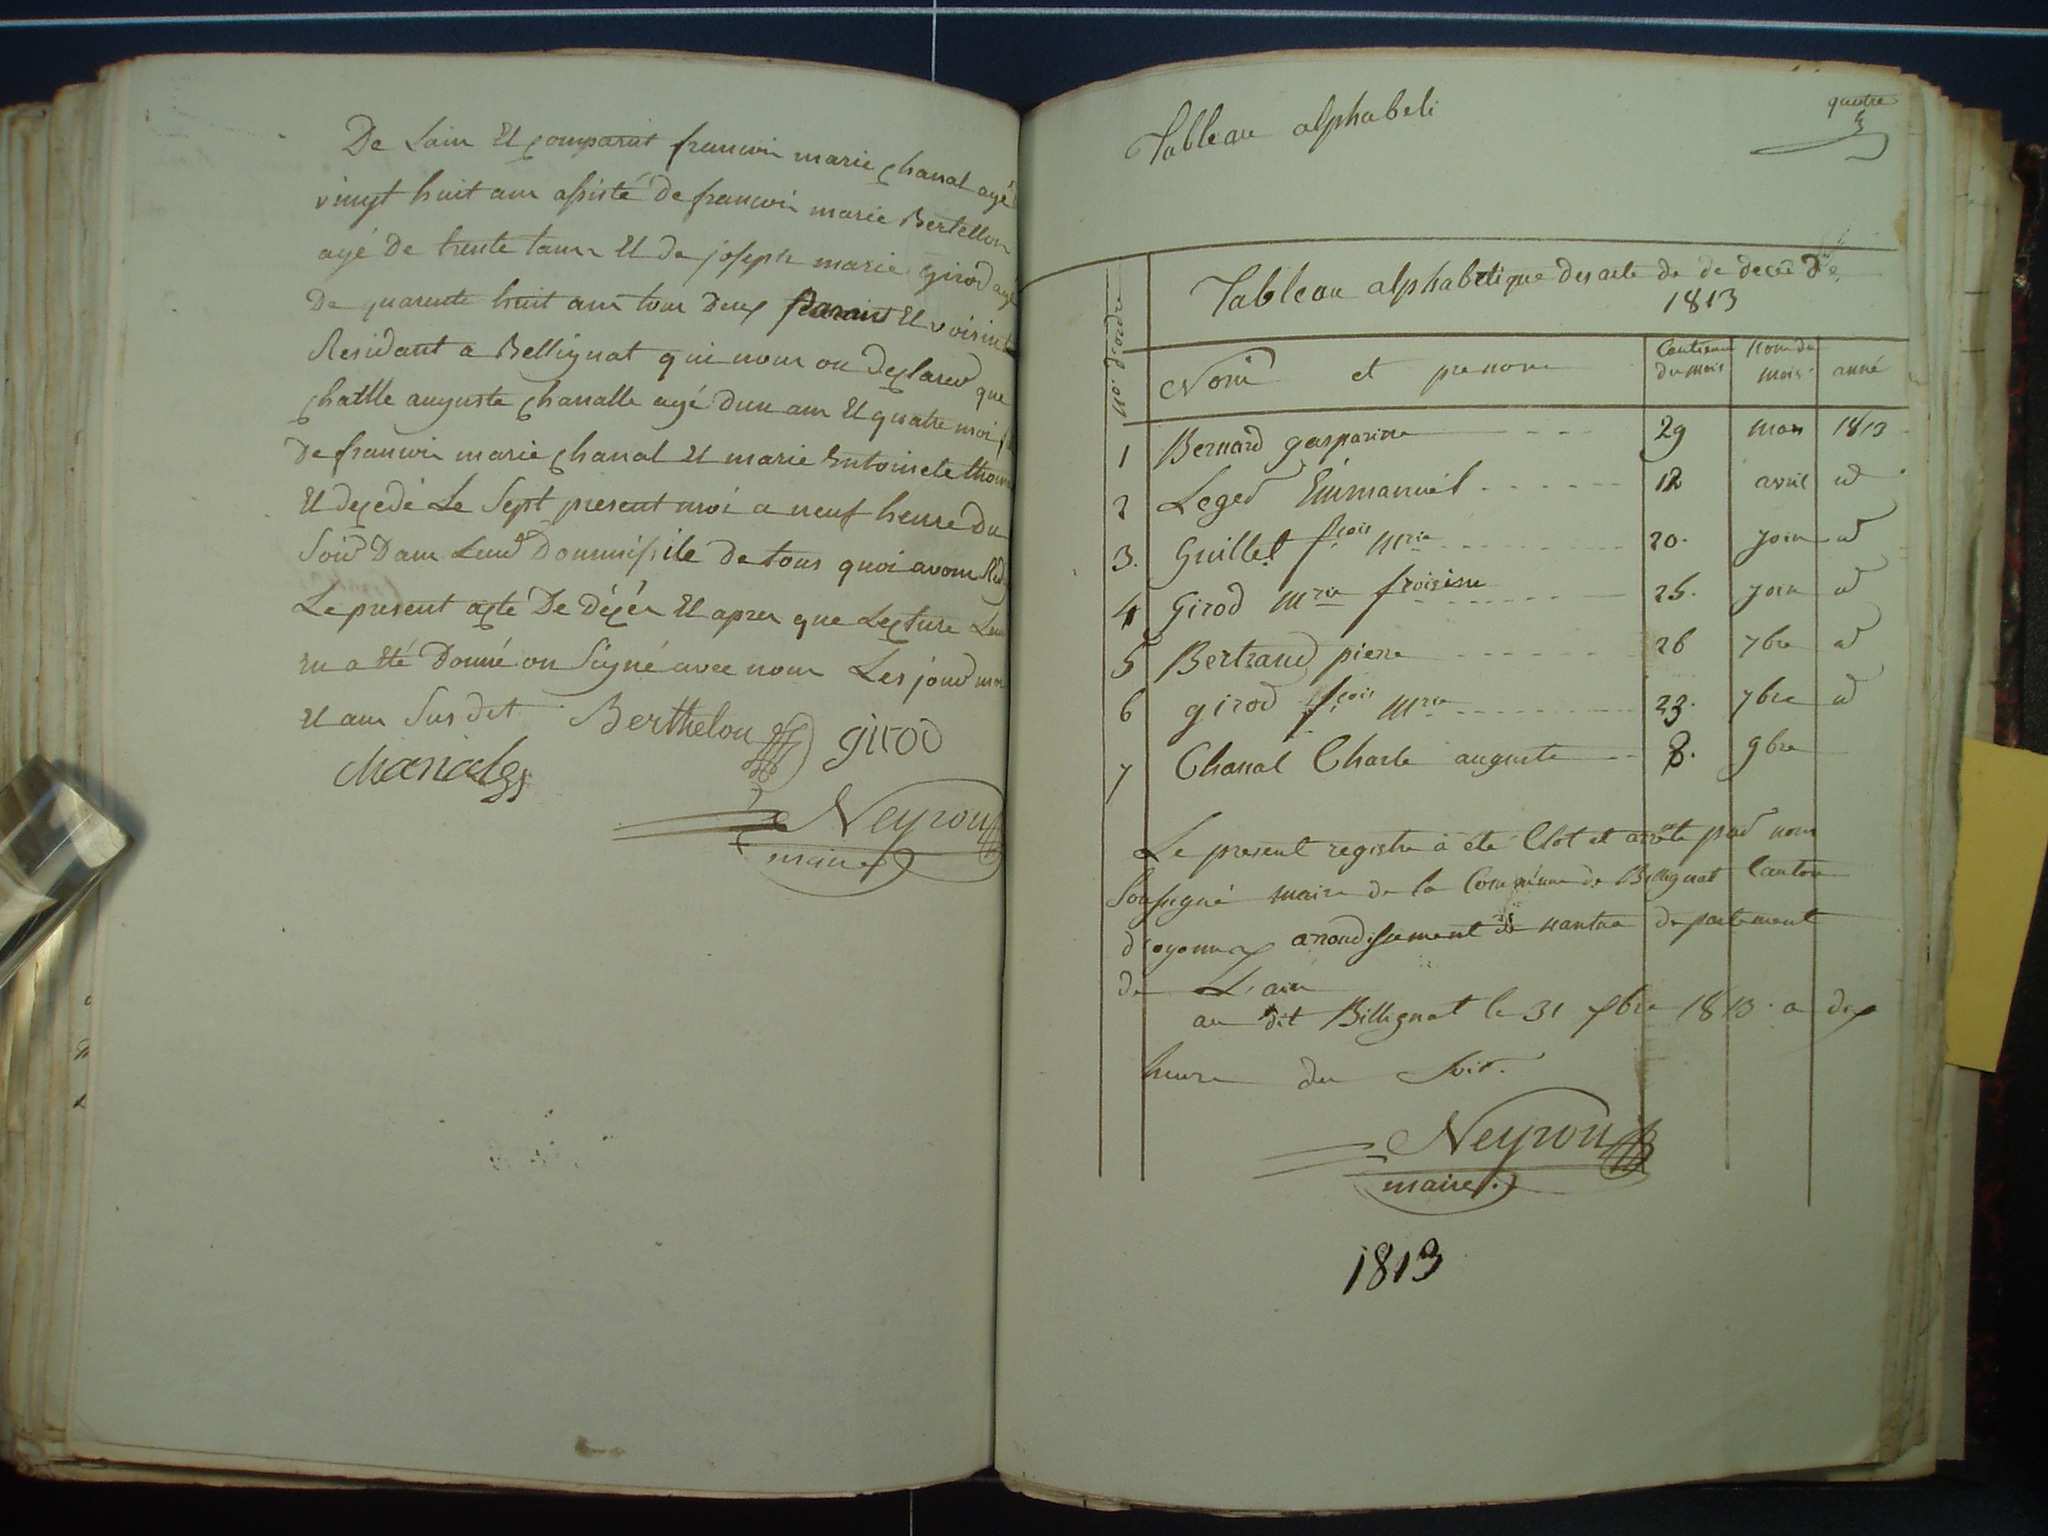 De Lain Et comparait francoi marie chanal agé
vingt huit an assisté de francoi marie Bertellon
agé De trente ans Et de joseph marie Girod agé
De quarente huit an tour Deux Parents Et voisint
Residant a Bellignat qui nour on declared que
chatlle auguste chanalle agé dun an Et quatre moi
De francoi marie chanal Et marie Entoinete
Et decedé Le Sept present moi a neuf heure du
Soir Dans Leur Dommissile de tous quoi avom
Le present acte De décés Et apres que Lecture
en a Eté Donné on Signé avec nour Les jour
Et an Sus dit Berthelon girod
chanal
Neyron
maire
quatre
Tableau alphabeti
No. d'ordre
Tableau alphabetique des acte de de deces de
1813
Nom et prenom
du mois
Nom du mois
anné
1 Bernard gasparine 29 mars 1813
2 Leger Emmanuel 12 avril id
3. Guillet fcois mrie 20. join id
4 Girod mrie 25. join id
5 Bertrand pierre 26 7bre id
6 girod fcois mrie 23. 7bre id
7 Chanal Charle auguste 8. 9bre
Le present registre à été Clot et arrêté par nous
Soussigné maire de la Commune de Billignat Canton
d'oyonnax arondissement de nantua departement
de L'ain
au dit Billignat le 31 1813 a dex
heure du Soir.
Neyron
maire
1813